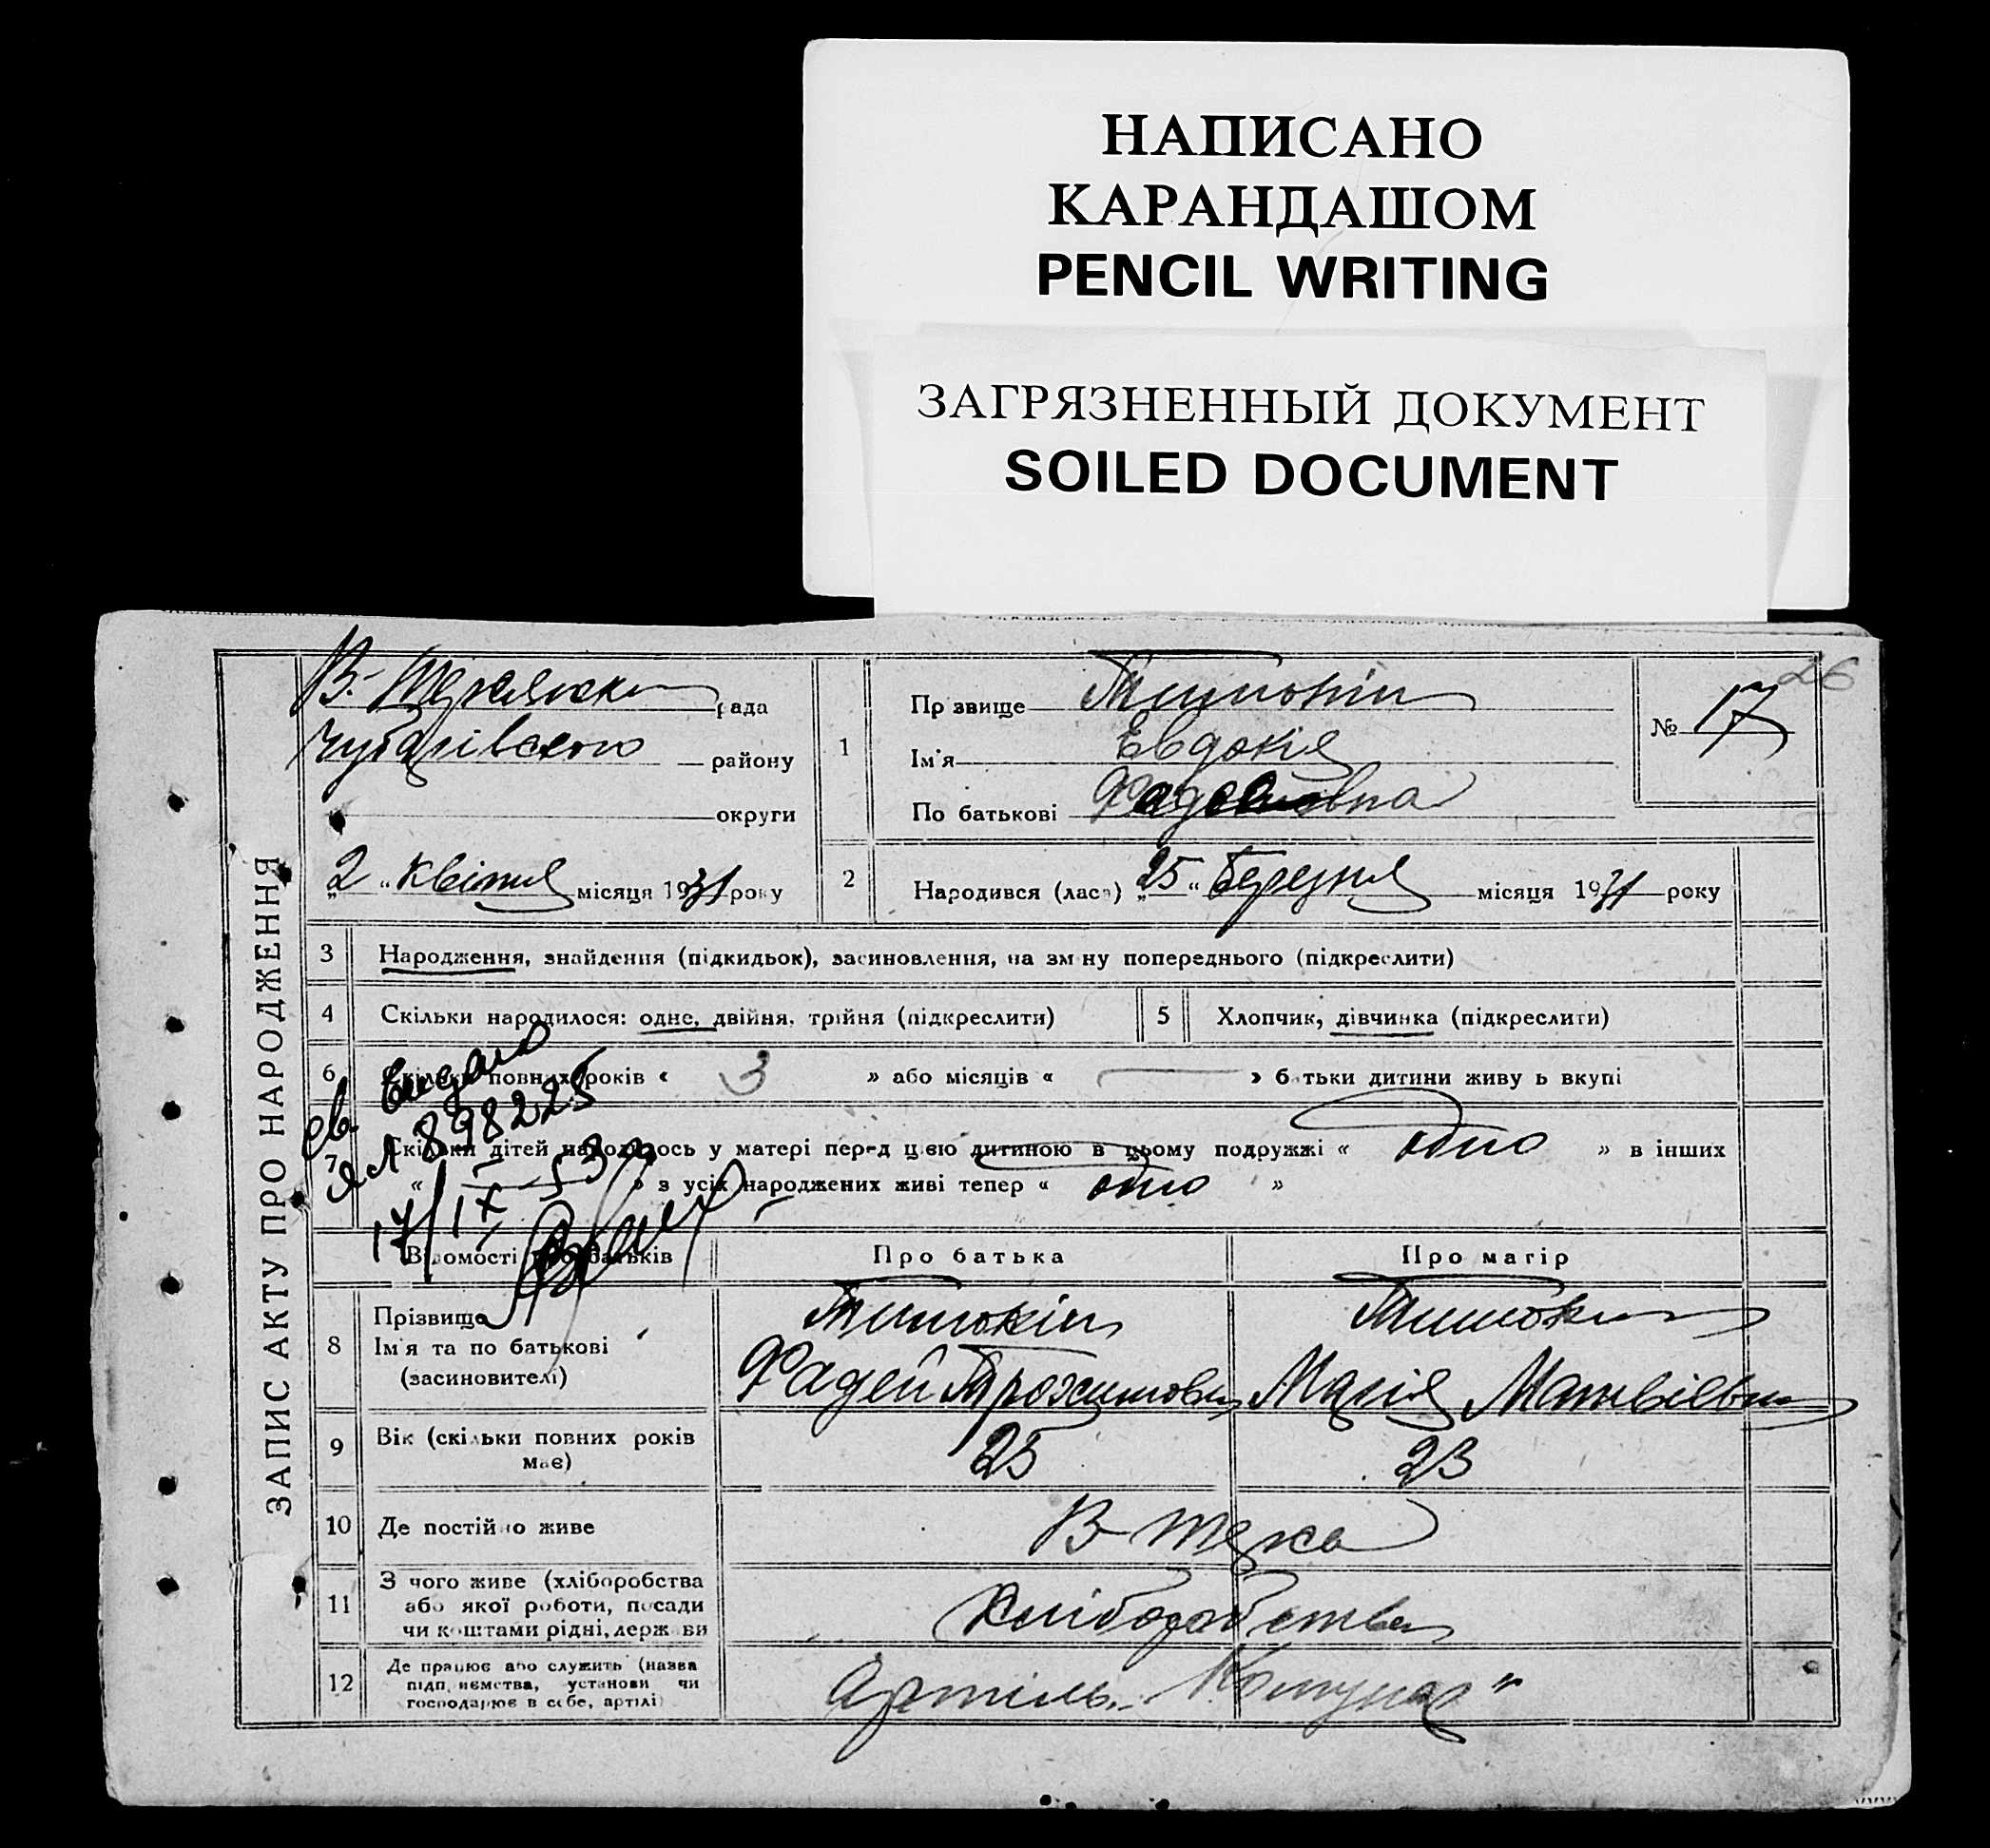 НАПИСАНО
КАРАНДАШОМ
PENCIL WRITING
ЗАГРЯЗНЕННЫЙ ДОКУМЕНТ
SOILED DOCUMENT
26
ЗАПИС АКТУ ПРО НАРОДЖЕННЯ
В.- Терсянська рада
Чубарівського району
округи
„2“ квітня місяця 1931 року
1
Прізвище Тимошкін
Ім'я Евдокія
По батькові Фадеевна
№ 17
2 Народився (лася) „25“ березня місяця 1931 року
3 Народження, знайдення (підкидьок), засиновлення, на зміну попереднього (підкреслити)
4 Скільки народилося: одне, двійня, трійня (підкреслити)
5 Хлопчик, дівчинка (підкреслити)
6 Скільки повних років « 3 » або місяців « — » батьки дитини живуть вкупі
7 Скільки дітей народилось у матері перед цією дитиною в цьому подружжі « одно » в інших
« — » з усіх народжених живі тепер « одно »
св. видано
ЯЛ 898225
17/IX 53
Відомості про батьків
Про батька
Про матір
8 Прізвище
Ім'я та по батькові
(засиновителі)
Фадей Трохимович
Марія Матвіевна
9 Вік (скільки повних років
має)
25
23
10 Де постійно живе
В-Терса
11 З чого живе (хліборобства
або якої роботи, посади
чи коштами рідні, держави
Хліборобства
12 Де працює або служить (назва
підприємства, установи чи
господарює в себе, артілі)
Артіль „Комунар“